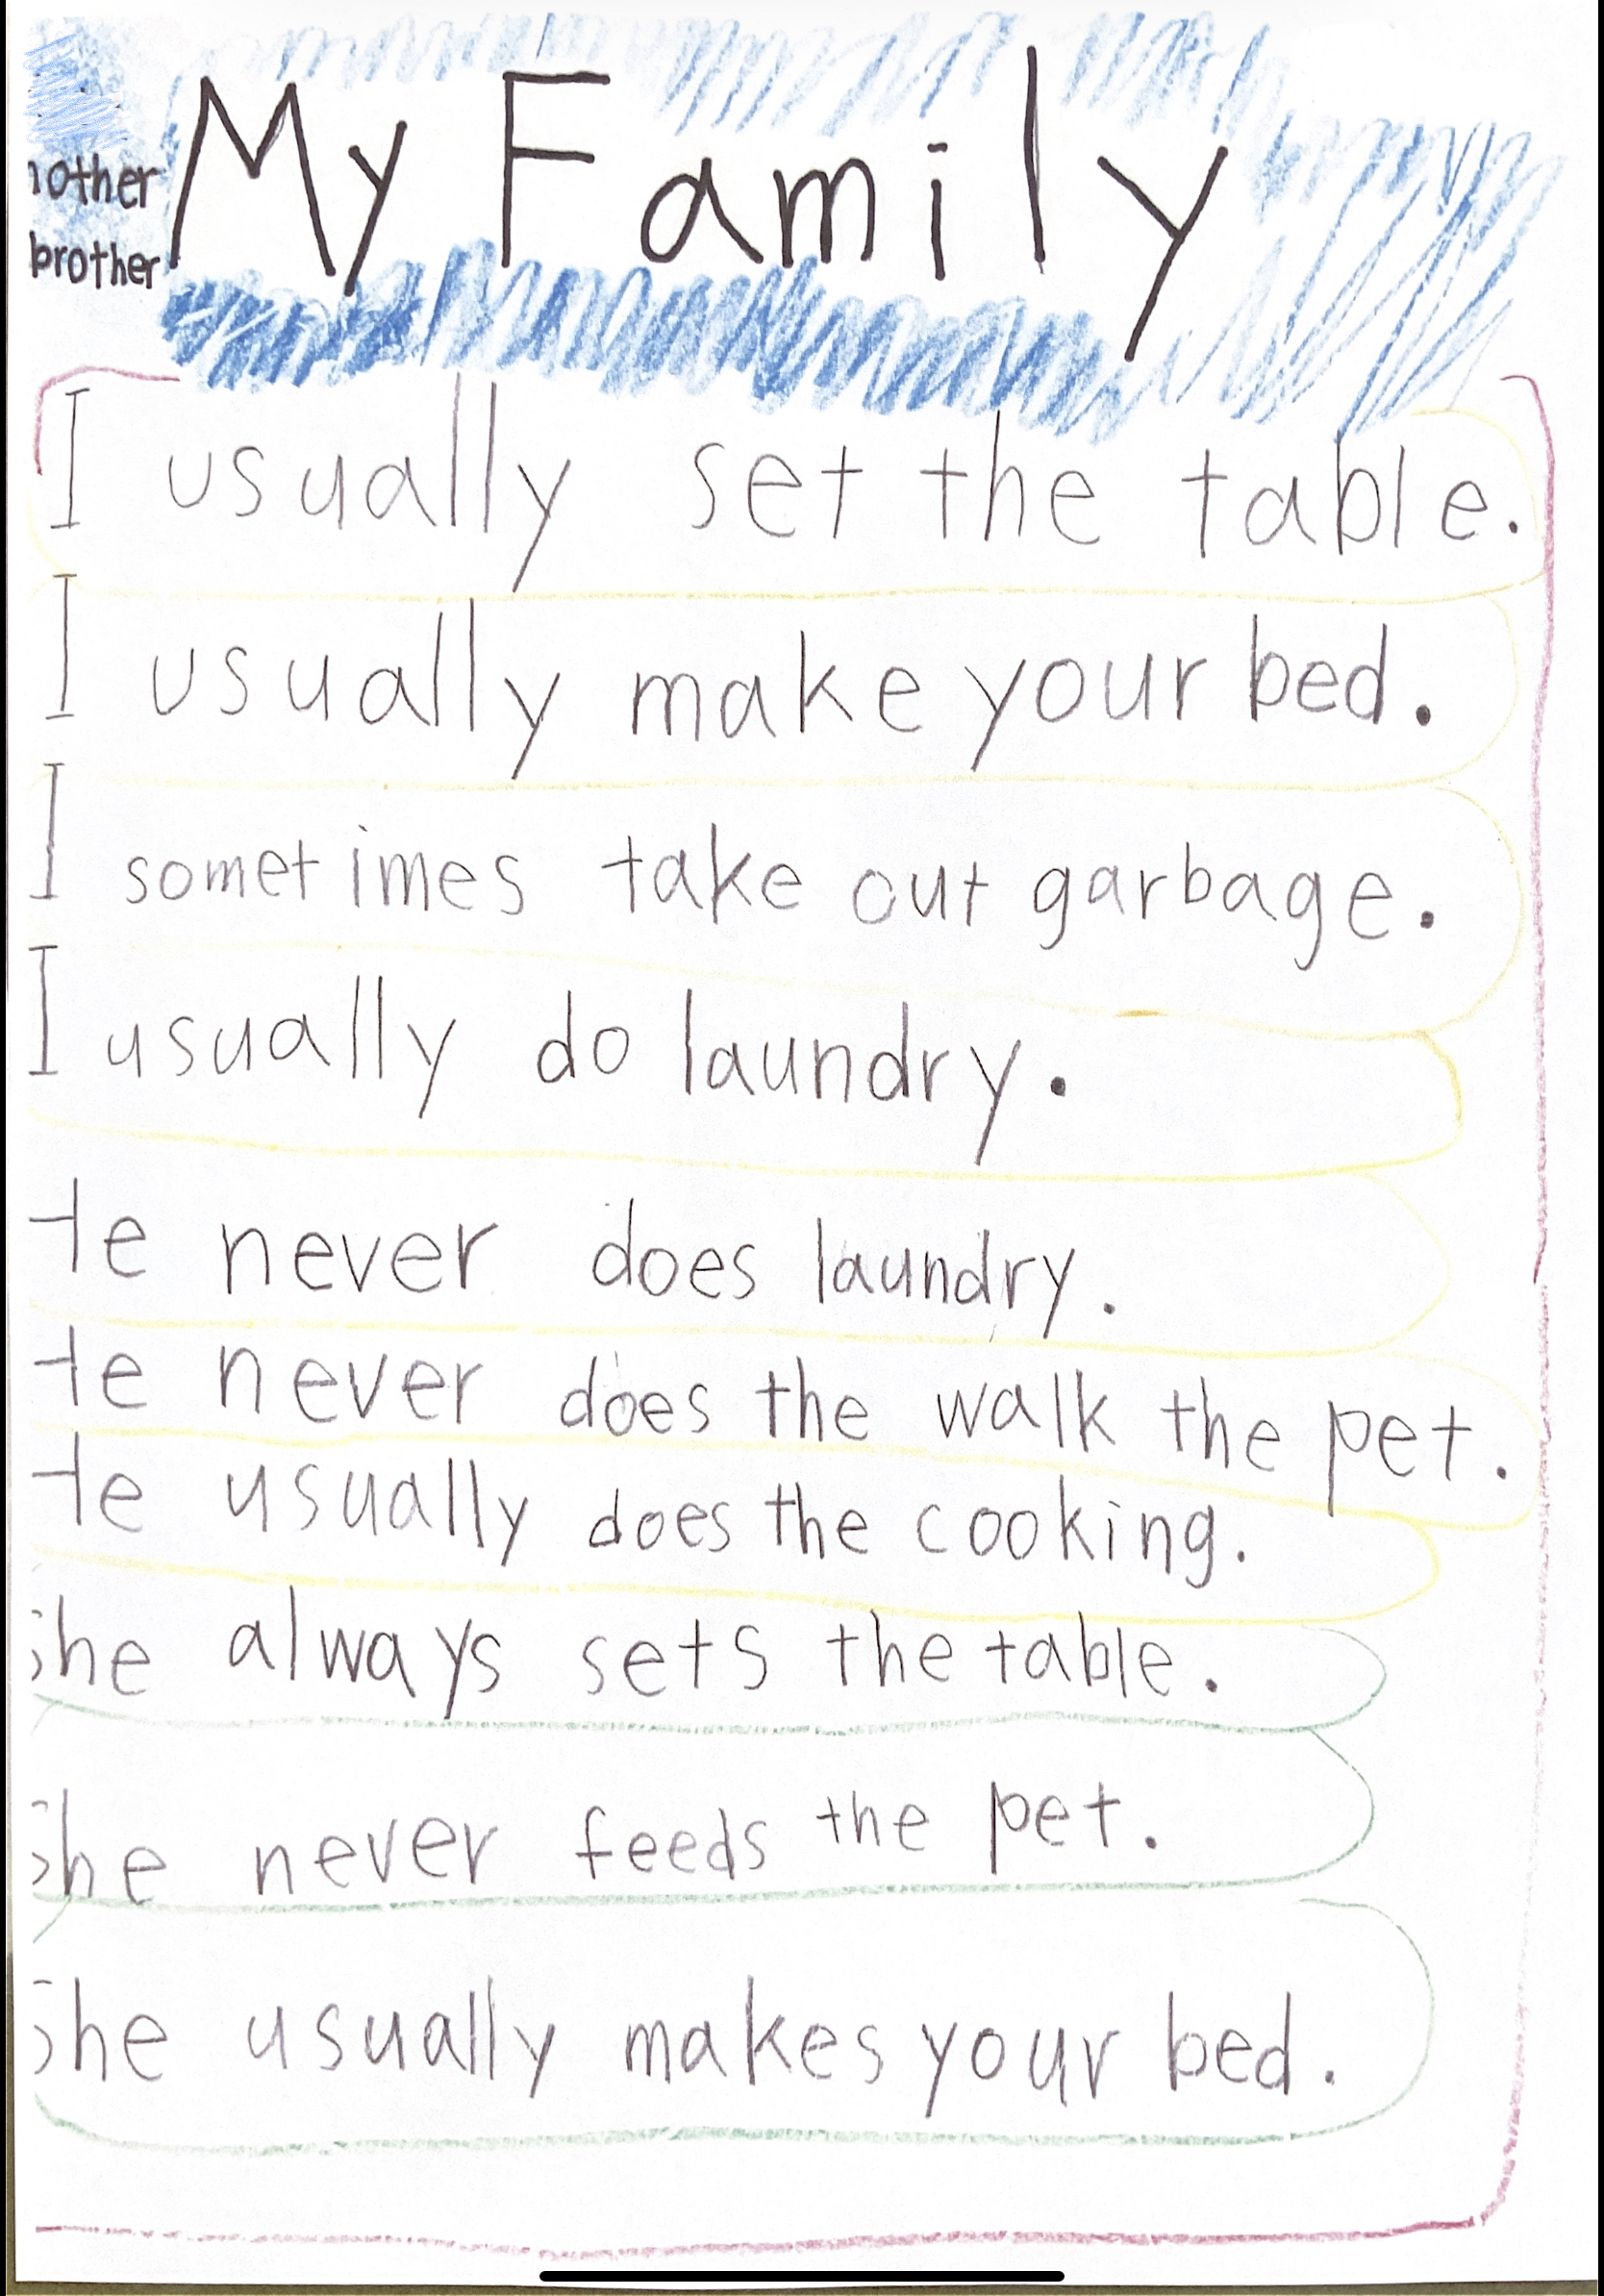 My Family
mother
brother
I usually set the table.
I usually make your bed.
I sometimes take out garbage.
I usually do laundry.
He never does laundry.
He never does the walk the pet.
He usually does the cooking.
She always sets the table.
She never feeds the pet.
She usually makes your bed.